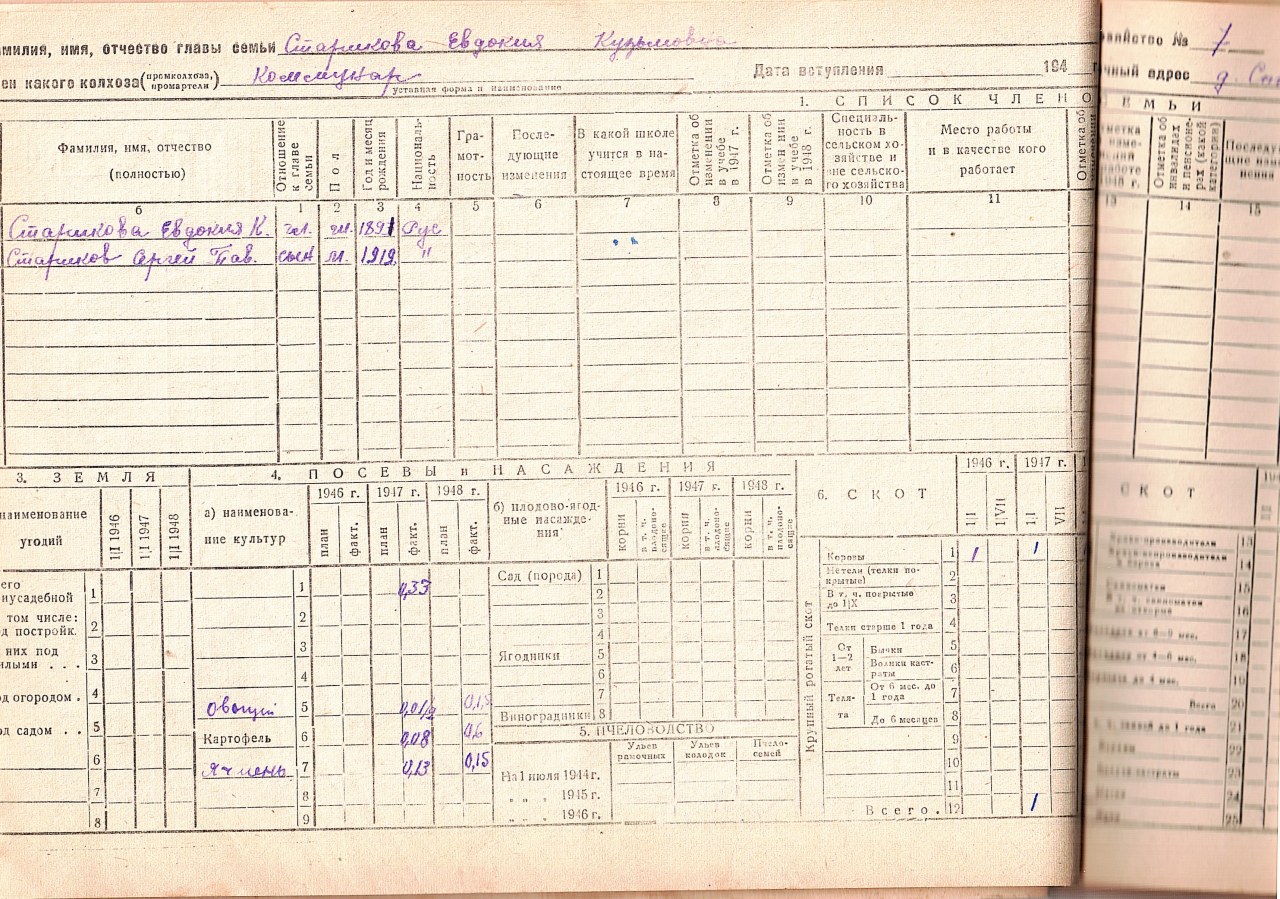 амилия, имя, отчество главы семьи Старикова Евдокия Кузьмовна
ен какого колхоза (промколхоза, промартели) Коммунар
уставная форма и наименование
Дата вступления 194
зяйство № 7
чный адрес д.
1. СПИСОК ЧЛЕНО
ЕМЬИ
Фамилия, имя, отчество (полностью)
Отношение к главе семьи
Пол
Год и месяц рождения
Националь-ность
Гра-мот-ность
После-дующие изменения
В какой школе учится в на-стоящее время
Отметка об изменении в учебе в 1947 г.
Отметка об измен нии в учебе в 1948 г.
Специаль-ность в сельском хо-зяйстве и вне сельско-го хозяйства
Место работы и в качестве кого работает
Отметка об
Отметка об инвалидах и пенсионе-рах (какой категории)
Последую-щие изме-нения
б 1 2 3 4 5 6 7 8 9 10 11 13 14 15
Старикова Евдокия К. гл. ж. 1891 Рус
Стариков Сергей Пав. сын м. 1919 "
3. ЗЕМЛЯ
наименование угодий
1|I 1946
1|I 1947
1|I 1948
его
иусадебной 1
том числе:
д постройк. 2
них под
илыми . . . 3
од огородом . 4
од садом . . 5
6
7
8
4. ПОСЕВЫ и НАСАЖДЕНИЯ
а) наименова-ние культур
1946 г. 1947 г. 1948 г.
план факт. план факт. план факт.
1 0,33
2
3
4
Овощи 5
Картофель 6 0,08
Ячмень 7 0,13 0,15
8
9
б) плодово-ягод-ные насажде-ния
1946 г. 1947 г. 1948 г.
корни в т. ч. плодоно-сящие корни в т. ч. плодоно-сящие корни в т. ч. плодоно-сящие
Сад (порода) 1
2
3
4
Ягодники 5
6
7
Виноградники 8
5. ПЧЕЛОВОДСТВО
Ульев рамочных
Ульев колодок
Пчело-семей
На 1 июля 1944 г.
" " " 1945 г.
" " " 1946 г.
6. СКОТ
1946 г. 1947 г.
1|I 1|VII 1|I VII
Крупный рогатый скот
Коровы 1 1 1
Нетели (телки по-крытые) 2
В т. ч. покрытые до 1|X 3
Телки старше 1 года 4
От 1—2 лет
Бычки 5
Волики каст-раты 6
Теля-та
От 6 мес. до 1 года 7
До 6 месяцев 8
9
10
11
Всего. 12 1
СКОТ
13
14
15
16
17
18
19
Всего 20
21
22
23
24
25